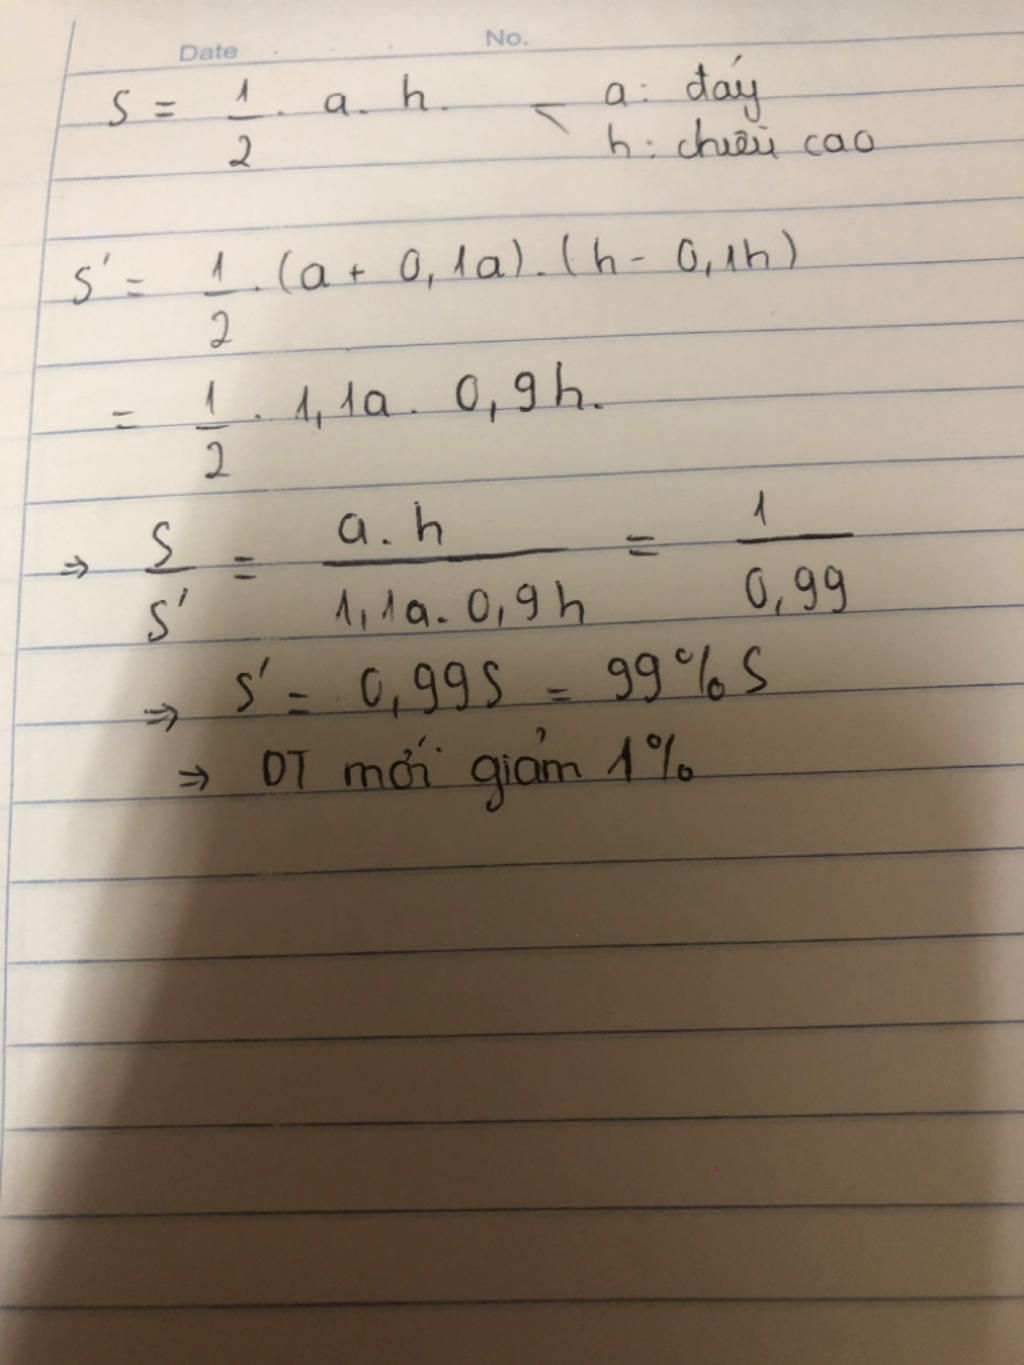 Date No.
S = 1/2 . a. h. < a: đáy
h: chiều cao
S' = 1/2 . (a + 0,1a) . (h - 0,1h)
= 1/2 . 1,1a . 0,9h.
⇒ S/S' = a.h / 1,1a.0,9h = 1/0,99
⇒ S' = 0,99S = 99% S
⇒ DT mới giảm 1%